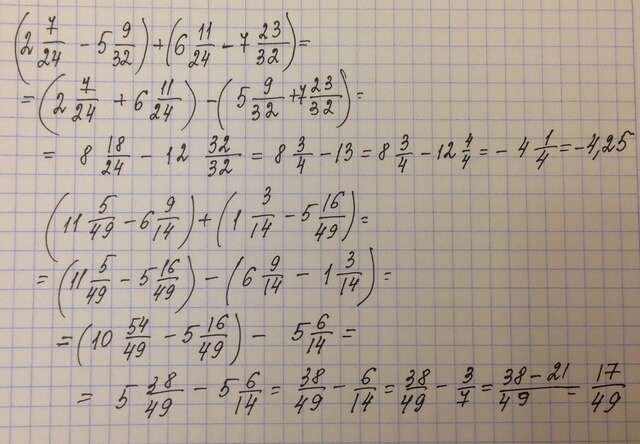 (2 7/24 - 5 9/32) + (6 11/24 - 7 23/32) =
= (2 7/24 + 6 11/24) - (5 9/32 + 7 23/32) =
= 8 18/24 - 12 32/32 = 8 3/4 - 13 = 8 3/4 - 12 4/4 = - 4 1/4 = -4,25
(11 5/49 - 6 9/14) + (1 3/14 - 5 16/49) =
= (11 5/49 - 5 16/49) - (6 9/14 - 1 3/14) =
= (10 54/49 - 5 16/49) - 5 6/14 =
= 5 38/49 - 5 6/14 = 38/49 - 6/14 = 38/49 - 3/7 = 38-21/49 = 17/49